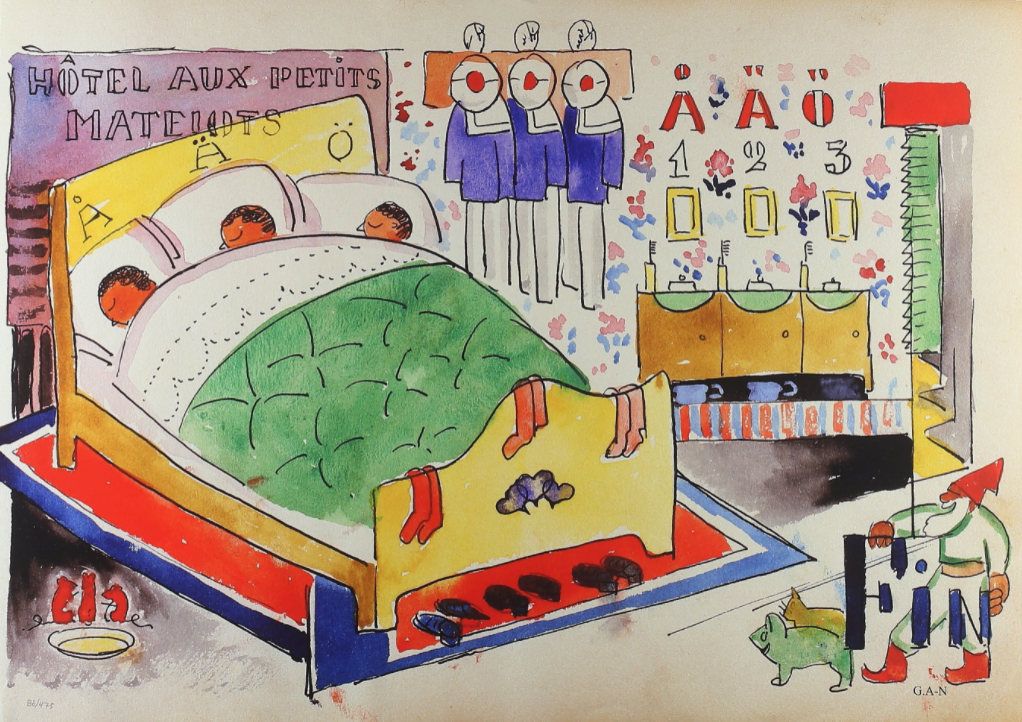 HÔTEL AUX PETITS
MATELOTS
Å Ä Ö
Å Ä Ö
1 2 3
FiN
G.A-N
86/475